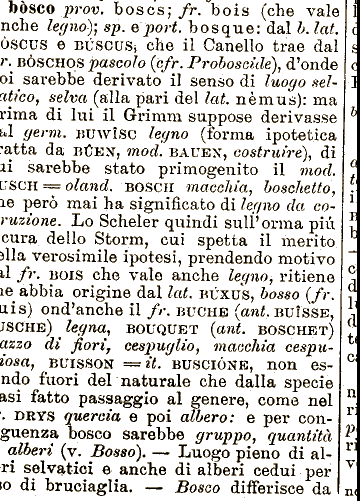 bòsco prov. boscs; fr. bois (che vale
nche legno); sp. e port. bosque: dal b. lat.
ÒSCUS e BÚSCUS, che il Canello trae dal
r. BÒSCHOS pascolo (cfr. Proboscide), d'onde
oi sarebbe derivato il senso di luogo sel-
atico, selva (alla pari del lat. nèmus): ma
rima di lui il Grimm suppose derivasse
al germ. BUWISC legno (forma ipotetica
ratta da BÛEN, mod. BAUEN, costruire), di
ui sarebbe stato primogenito il mod.
USCH = oland. BOSCH macchia, boschetto,
he però mai ha significato di legno da co-
ruzione. Lo Scheler quindi sull'orma più
cura dello Storm, cui spetta il merito
ella verosimile ipotesi, prendendo motivo
al fr. BOIS che vale anche legno, ritiene
he abbia origine dal lat. BÚXUS, bosso (fr.
uis) ond'anche il fr. BUCHE (ant. BUÎSSE,
USCHE) legna, BOUQUET (ant. BOSCHET)
azzo di fiori, cespuglio, macchia cespu-
iosa, BUISSON = it. BUSCIÓNE, non es-
ndo fuori del naturale che dalla specie
asi fatto passaggio al genere, come nel
r. DRYS quercia e poi albero: e per con-
guenza bosco sarebbe gruppo, quantità
alberi (v. Bosso). — Luogo pieno di al-
ri selvatici e anche di alberi cedui per
so di bruciaglia. — Bosco differisce da